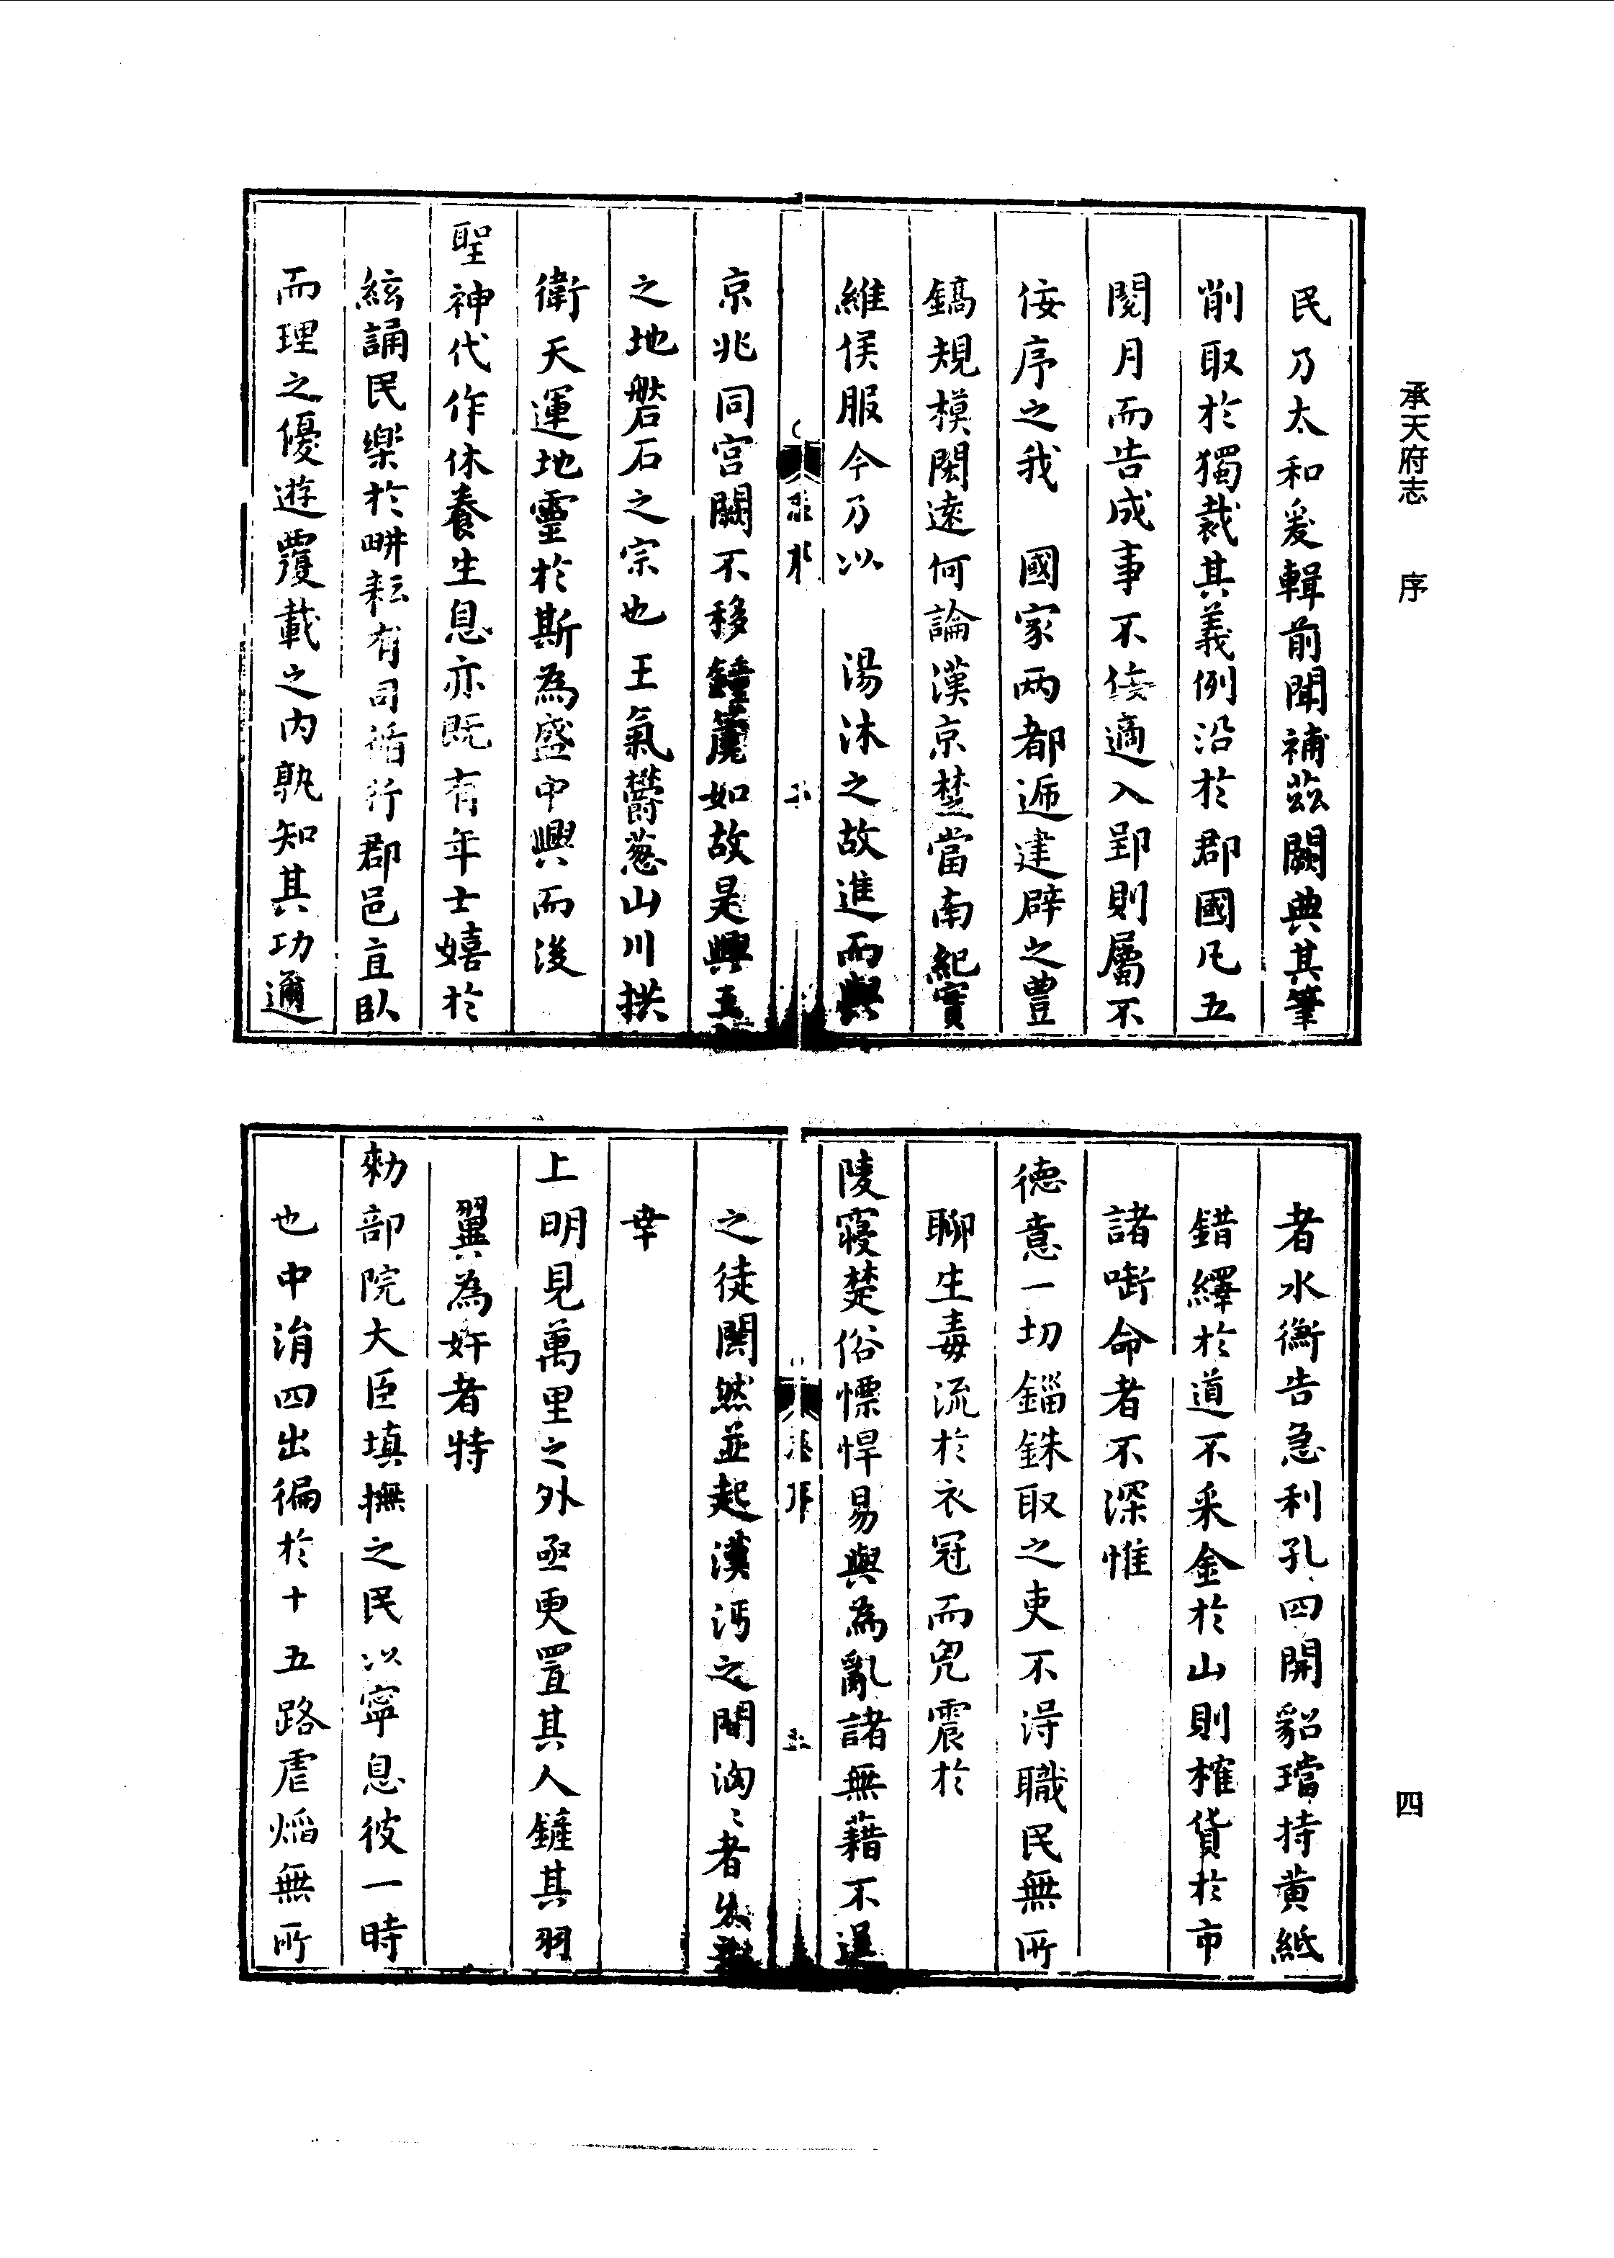 承天府志　序
四
民乃太和爰輯前聞補茲闕典其筆
削取於獨裁其義例沿於郡國凡五
閱月而告成事不佞適入郢則屬不
佞序之我　國家兩都遞建辟之豐
鎬規模閎遠何論漢京楚當南紀實
維侯服今乃以　湯沐之故進而與
京兆同宮闕不移鐘簴如故是興王
之地磐石之宗也王氣鬱葱山川拱
衛天運地靈於斯為盛中興而後
聖神代作休養生息亦既有年士嬉於
絃誦民樂於畊耘有司循行郡邑直臥
而理之優遊覆載之內孰知其功邇
者水衡告急利孔四開貂璫持黄紙
錯繹於道不采金於山則榷貨於市
諸啣命者不深惟
德意一切錙銖取之吏不得職民無所
聊生毒流於衣冠而兕震於
陵寢楚俗慓悍易與為亂諸無藉不逞
之徒鬨然並起漢沔之間洶〻者
幸
上明見萬里之外亟更置其人鏟其羽
翼為奸者特
勑部院大臣填撫之民以寧息彼一時
也中涓四出徧於十五路虐熖無所